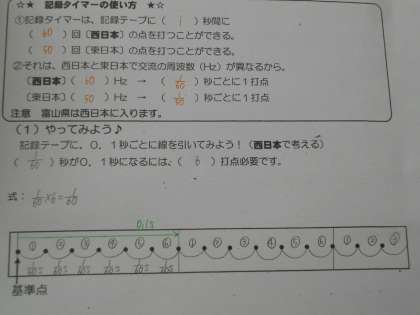 ☆★ 記録タイマーの使い方 ★☆
①記録タイマーは、記録テープに( 1 )秒間に
( 60 )回〔西日本〕の点を打つことができる。
( 50 )回〔東日本〕の点を打つことができる。
②それは、西日本と東日本で交流の周波数(Hz)が異なるから。
〔西日本〕( 60 )Hz → ( 1/60 )秒ごとに1打点
〔東日本〕( 50 )Hz → ( 1/50 )秒ごとに1打点
注意 富山県は西日本に入ります。
(1)やってみよう♪
記録テープに、0.1秒ごとに線を引いてみよう!(西日本で考える)
( 1/60 )秒が0.1秒になるには、( 6 )打点必要です。
式: 1/60×6=
0.1s
① ② ③ ④ ⑤ ⑥ ① ② ③ ④ ⑤ ⑥ ① ② ③
1/60s 1/60s 1/60s 1/60s 1/60s 1/60s
基準点